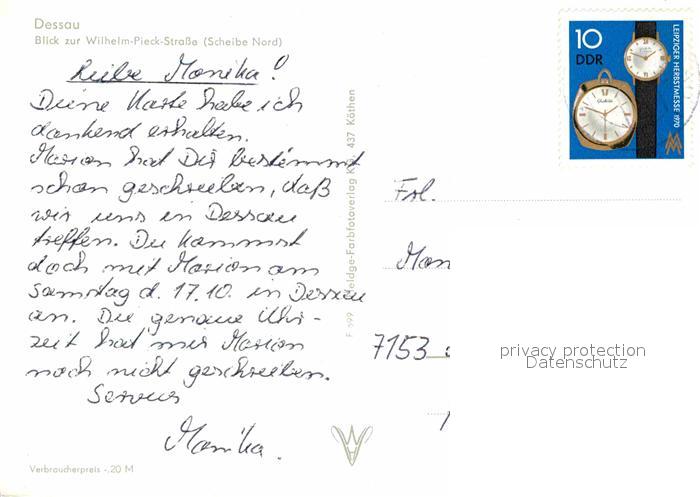 Dessau
Blick zur Wilhelm-Pieck-Straße (Scheibe Nord)
Liebe Monika!
Deine Karte habe ich
dankend erhalten.
Marion hat Dir bestimmt
schon geschrieben, daß
wir uns in Dessau
treffen. Du kommst
doch mit Marion am
Samstag d. 17.10. in Dessau
an. Die genaue Uhr-
zeit hat mir Marion
noch nicht geschrieben.
Servus
Monika.
Verbraucherpreis -.20 M
437 Köthen
10
DDR
LEIPZIGER HERBSTMESSE 1970
MM
Frl.
Mon
7153
privacy protection
Datenschutz